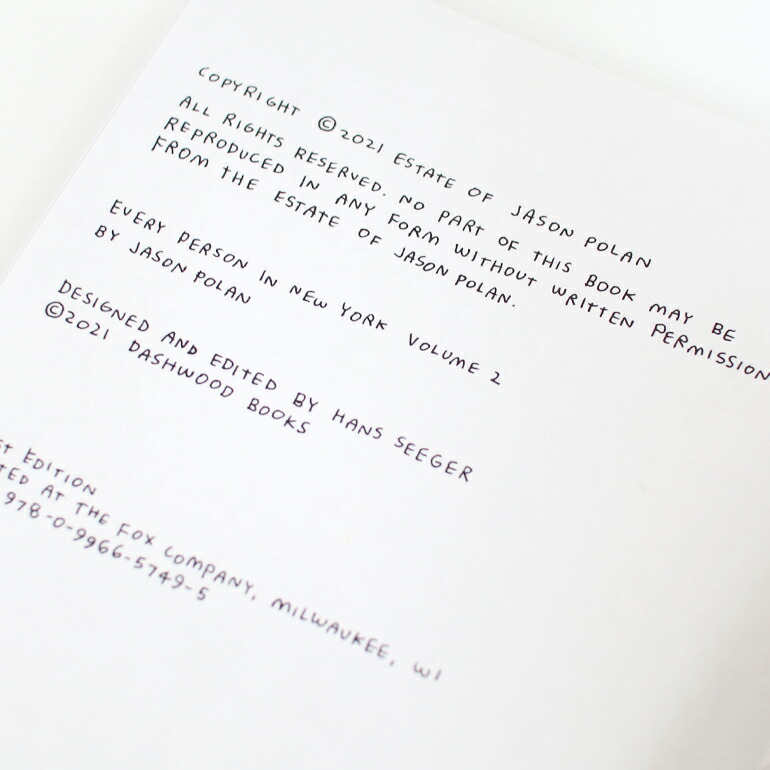 COPYRIGHT ©2021 ESTATE OF JASON POLAN
ALL RIGHTS RESERVED. NO PART OF THIS BOOK MAY BE
REPRODUCED IN ANY FORM WITHOUT WRITTEN PERMISSION
FROM THE ESTATE OF JASON POLAN.
EVERY PERSON IN NEW YORK VOLUME 2
BY JASON POLAN
DESIGNED AND EDITED BY HANS SEEGER
©2021 DASHWOOD BOOKS
EDITION
AT THE FOX COMPANY, MILWAUKEE, WI
978-0-9966-5749-5